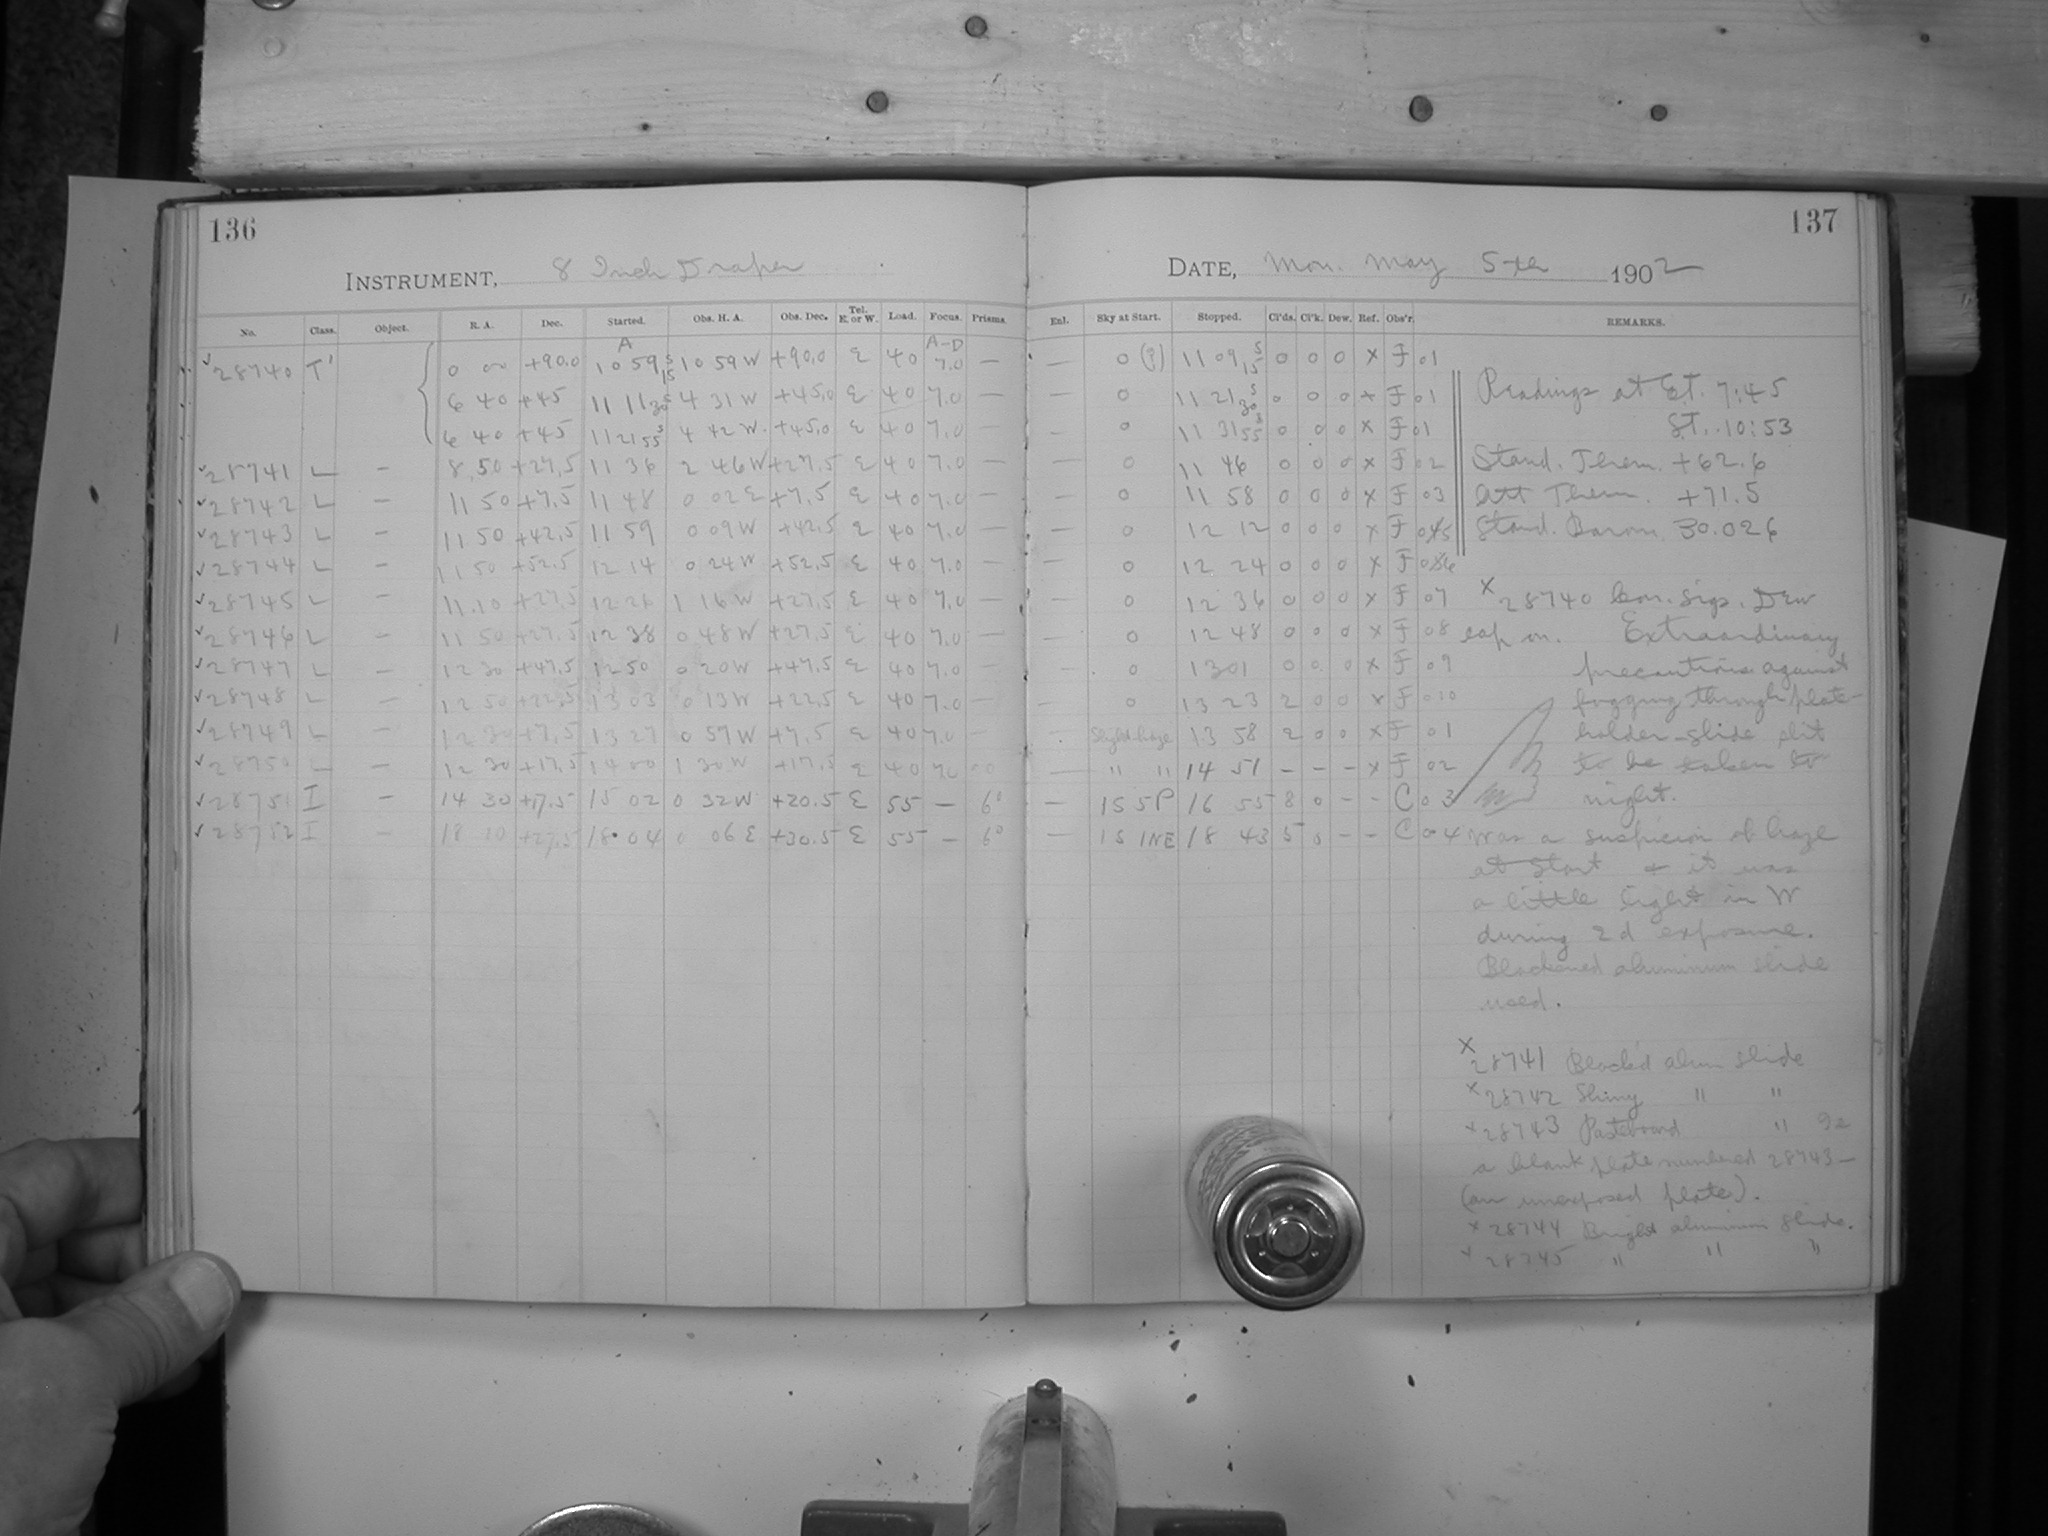 136
137
INSTRUMENT, 8 Inch Draper
DATE, Mon. May 5th 1902
No. Class. Object. R. A. Dec. Started. Obs. H. A. Obs. Dec. Tel. E. or W. Load. Focus. Prisms. Enl. Sky at Start. Stopped. Cl'ds. Cl'k. Dew. Ref. Obs'r. REMARKS.
A A-D
28740 T' 0 00 +90.0 10 59 15s 10 59 W +90.0 E 40 7.0 — — 0 (?) 11 09 15s 0 0 0 x F 01
6 40 +45 11 11 30s 4 31 W +45.0 E 40 7.0 — — 0 11 21 30s 0 0 0 x F 01
6 40 +45 11 21 55s 4 42 W. +45.0 E 40 7.0 — — 0 11 31 55s 0 0 0 x F 01
28741 L — 8 50 +27.5 11 36 2 46 W +27.5 E 40 7.0 — — 0 11 46 0 0 0 x F 02
28742 L — 11 50 +7.5 11 48 0 02 E +7.5 E 40 7.0 — — 0 11 58 0 0 0 x F 03
28743 L — 11 50 +42.5 11 59 0 09 W +42.5 E 40 7.0 — — 0 12 12 0 0 0 x F
28744 L — 11 50 +52.5 12 14 0 24 W +52.5 E 40 7.0 — — 0 12 24 0 0 0 x F
28745 L — 11 10 +27.5 12 26 1 16 W +27.5 E 40 7.0 — — 0 12 36 0 0 0 x F 07
28746 L — 11 50 +27.5 12 38 0 48 W +27.5 E 40 7.0 — — 0 12 48 0 0 0 x F 08
28747 L — 12 30 +47.5 12 50 0 20 W +47.5 E 40 7.0 — — 0 13 01 0 0 0 x F 09
28748 L — 12 50 +22.5 13 03 0 13 W +22.5 E 40 7.0 — — 0 13 23 2 0 0 x F 010
28749 L — 12 30 +7.5 13 27 0 57 W +7.5 E 40 7.0 — — Slight haze 13 58 2 0 0 x F 01
28750 L — 12 30 +17.5 14 00 1 30 W +17.5 E 40 7.0 — " " 14 51 — — — x F 02
28751 I — 14 30 +17.5 15 02 0 32 W +20.5 E 55 — 6° — 1S 5P 16 55 8 0 - - C 03
28752 I — 18 10 +27.5 18 04 0 06 E +30.5 E 55 — 6° — 1S 1NE 18 43 5 0 - - C 04
Readings at Et. 7:45
S.T. 10:53
Stand. Therm. +62.6
Att Therm. +71.5
Stand. Barom. 30.026
x 28740 Con. Sigs. Dew
cap on. Extraordinary
precautions against
fogging through plate-
holder-slide slit
to be taken to
night.
Was a suspicion of haze
at start & it was
a little light in W
during 2d exposure.
Blackened aluminum slide
used.
x 28741 Black'd alum slide
x 28742 Shiny " "
x 28743 Pasteboard "
a blank plate numbered 28743—
(an unexposed plate).
x 28744 Bright aluminum slide.
x 28745 " " "